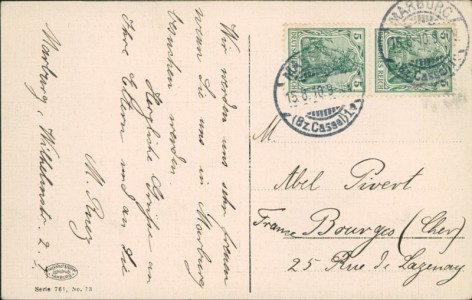 Wir werden uns sehr freuen
wenn Sie uns in Marburg
besuchen werden.
Herzliche Grüße an
Ihre Eltern und an Sie
M.
Marburg, Wilhelmstr. 2.
Serie 761, No.
MARBURG
15.8.10.9
(Bz. Cassel) 1
MARBURG
15.8.10.9
(Bz. Cassel) 1
5 5
5 5
M.
Abel Pivert
France Bourges (Cher)
25 Rue de Lazenay